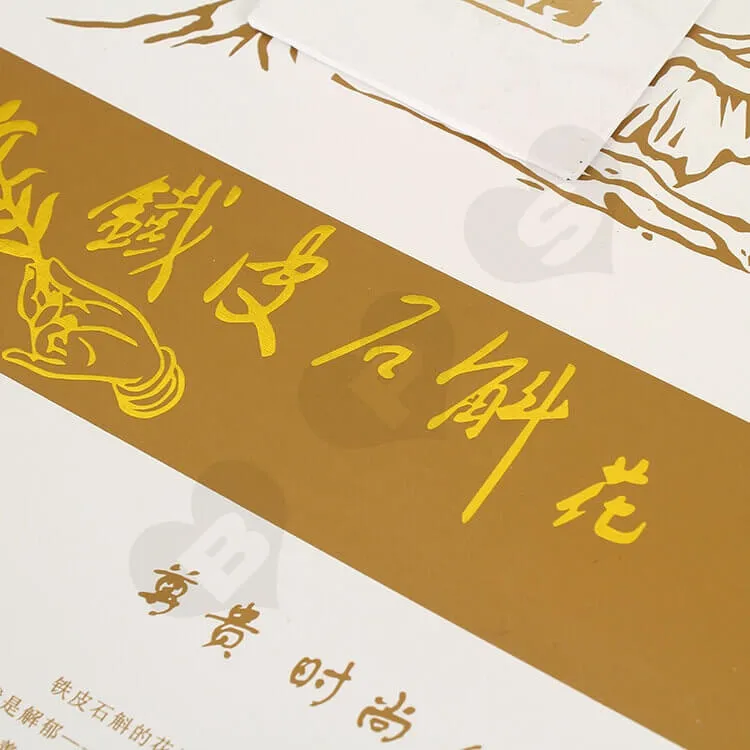 鐵皮石斛花
尊贵 时尚
铁皮石斛的花
是解郁一
S
B